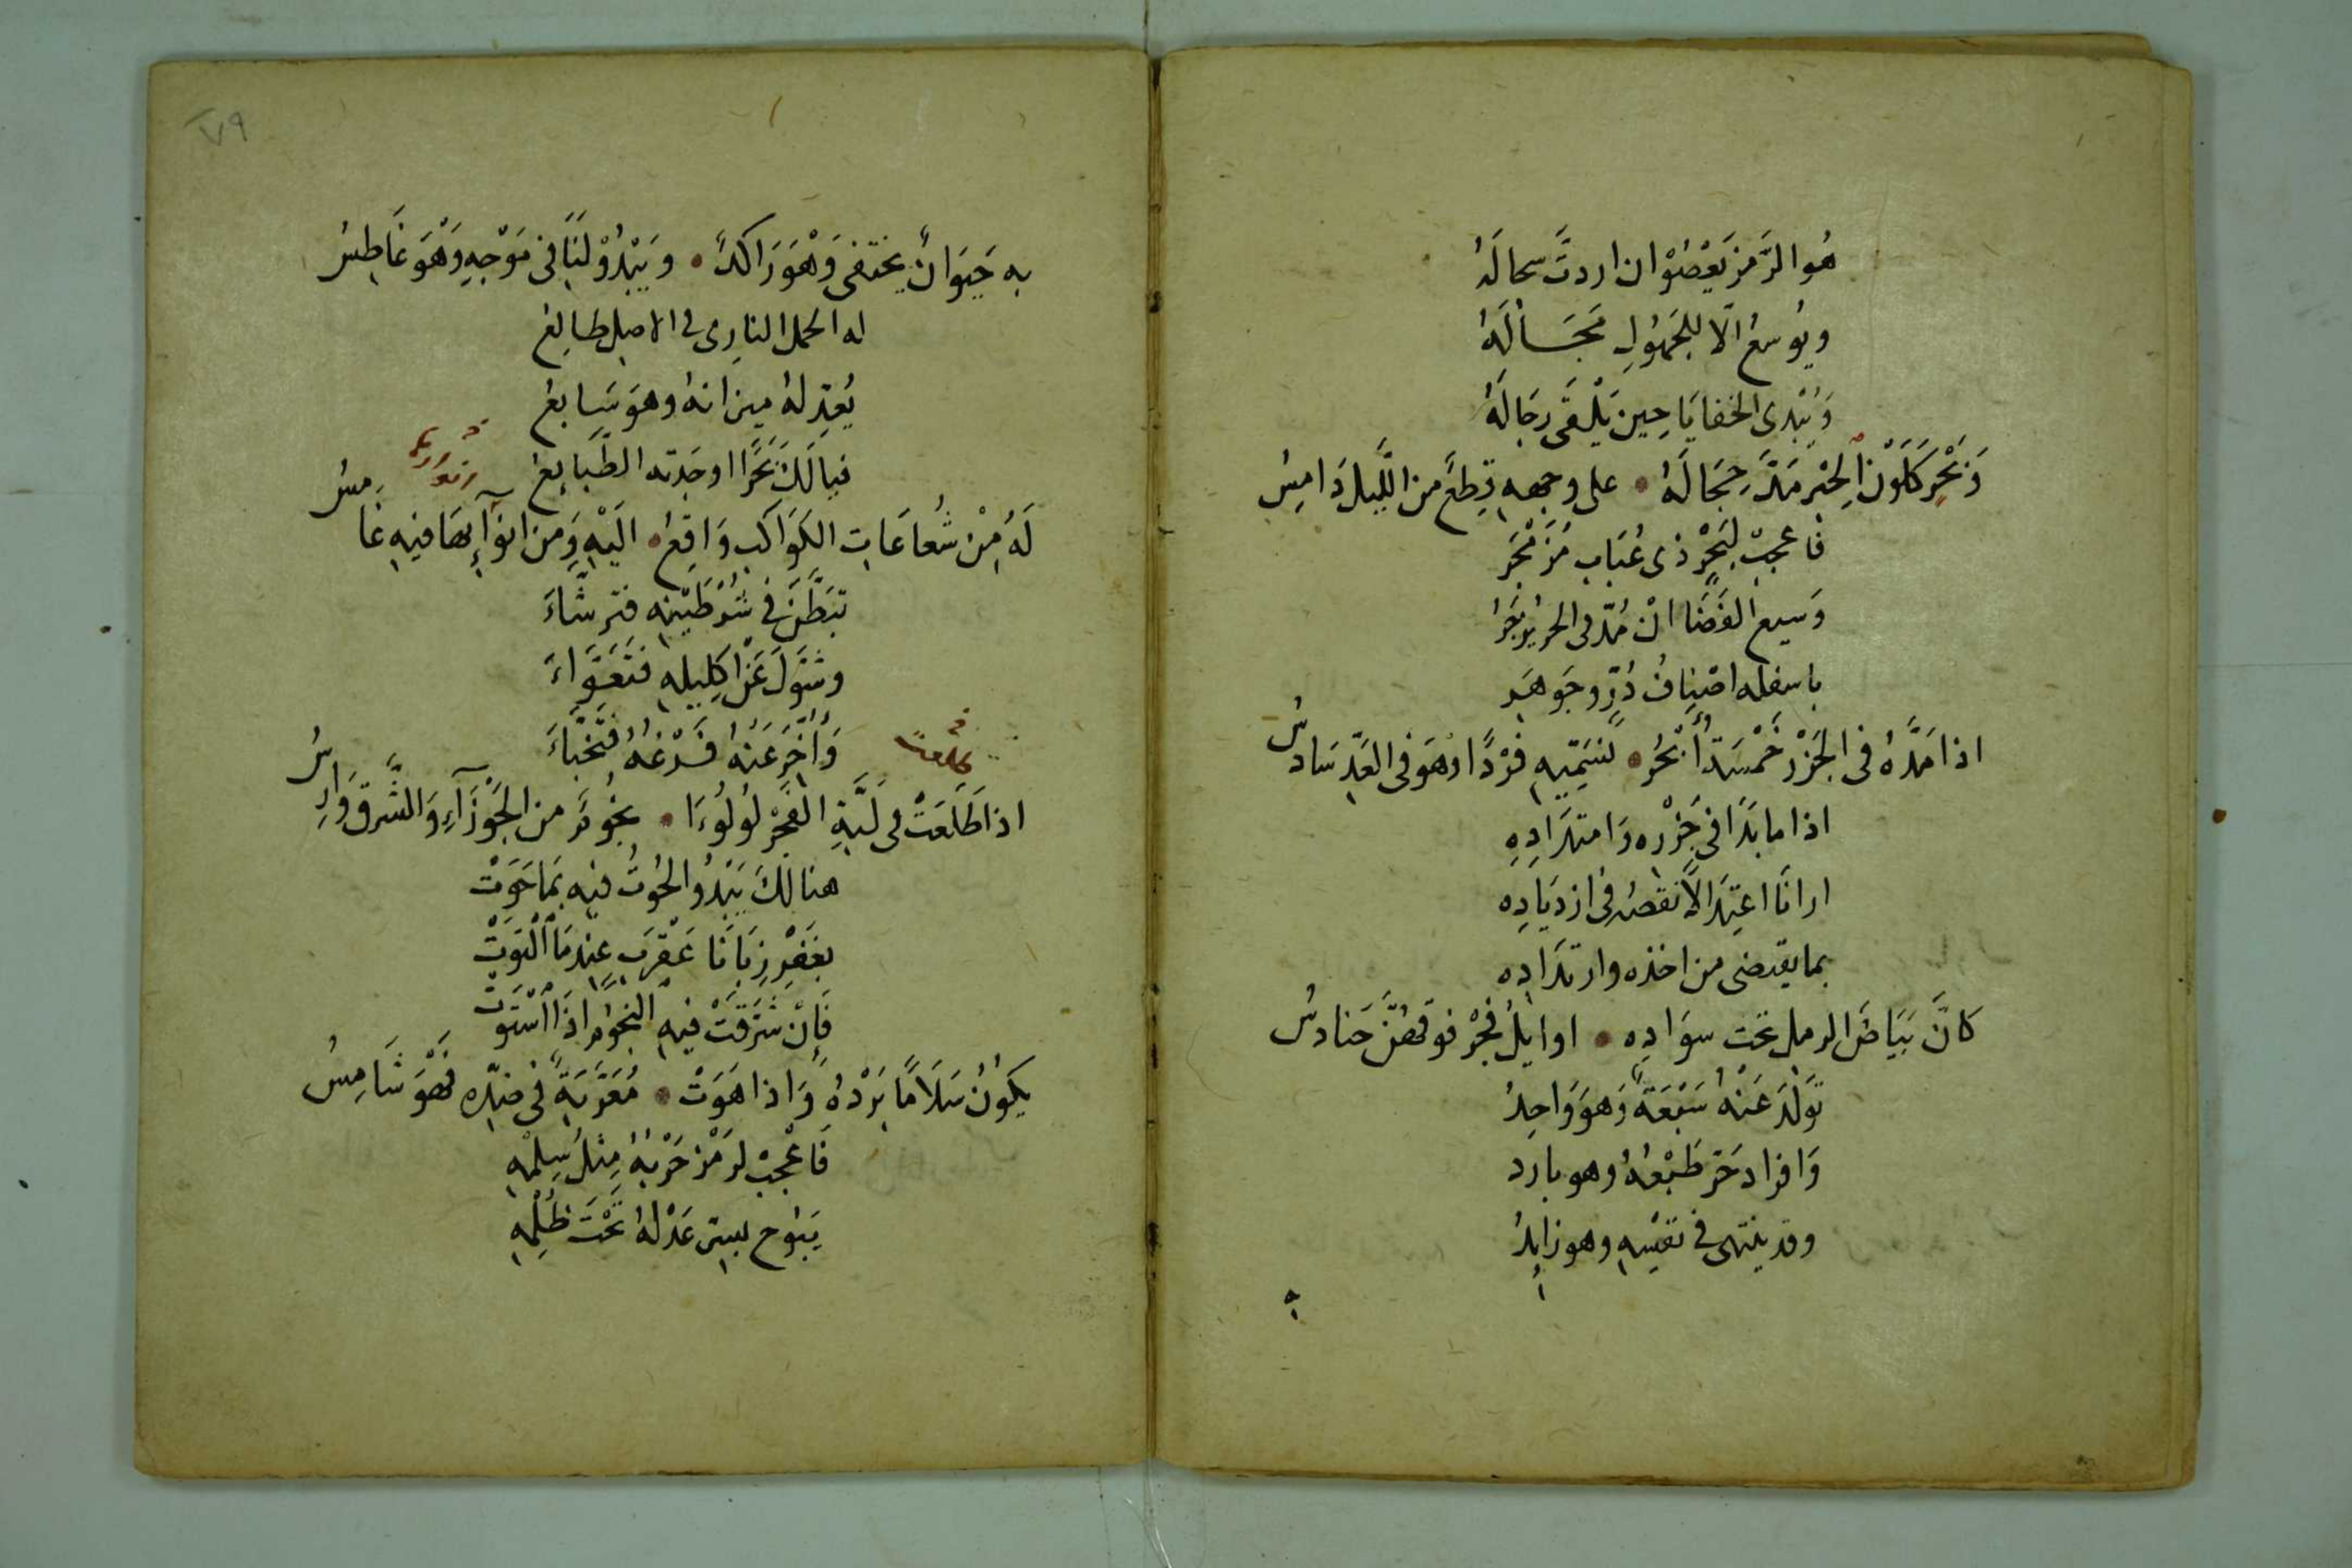 هُوا لرَّمز يَعْصُوْ ان اردتَّ سحا لَهُ
ويُوسعُ الّا للجَهُولِ مَجَالَهُ
وَيُبْدى الخفايَا حِين يَلْقَى رجَالَهُ
وَبَحْرٍ كَلَوْنِ الحِبْرِ مَدَّ حِجَالَهُ • على وجهه قِطَعٌ من اللَّيل دَامِسُ
فاعجبْ لبَحْرٍ ذى عُبَاب مُزَمْجَرِ
وَسيع الفَضَا انْ مُدّ فى
باسفله اصْنافُ دُرٍّ وجَوهَر
اذا مَدَّهُ فى الجَزْر خَمْسَةُ أَبْحُرٍ • نُسَمِّيه فَرْدًا وَهوَ فى العَدِّ سَادسُ
اذا ما بَدَا فى جَزْره وَامتدَادِهِ
ارانَا اعتِدَالًا نقصُه فى ازديَادِه
بما يقتضى من اخذه وارتدَادِه
كانَّ بَيَاضَ الرمل تحت سوَادِه • اوايلُ فجْرٍ فوقهُنَّ حَنادسُ
تَوَلَّدَ عَنْهُ سَبْعَةٌ وَهوَ وَاحِدُ
وَافراد حَرّ طَبْعُهُ وهو بارد
وقد ينتهى فى نَفْسِهِ وهو زايدُ
٧٩
به حَيَوَانٌ يختفى وَهْوَ رَاكدٌ • وَيَبْدُوْ لَنَا فى مَوْجِهِ وَهْوَ غَاطِسُ
له الحمل النارى فى الاصل طالِعُ
يُعَدِّلهُ ميزانهُ وهوَ سَابعُ
فيالَكَ بَحْرًا اوجَدته الطَّبَايعُ
لَهُ مِنْ شُعاعَات الكَوَاكب وَاقِعٌ • الَيْهِ وَمن انوَآئِهَا فيه غَامِسُ
تبَطَّنَ فى شَرْطَيْنه فترشَّاءَ
وشَوَّلَ عَنْ اكلِيله فتَعَوَّاءَ
وَأُخِّرَ عَنهُ فَرْغُهُ فتَخَبَّاءَ
اذا طَلَعَتْ فى لَبَّةِ الفَجْرِ لُولُوءَا • نجُومٌ من الجَوْزَآءِ وَالشَّرق وَارِسُ
هنالكَ يَبْدُو الحُوتُ فيه بمَا حَوَتْ
بغَفْرِ زبَانَا عَقْرَبٍ عِندمَا الْتَوَتْ
فَإنْ شَرَّقَتْ فيه النجُوم اذَا اسْتَوَتْ
يكوُنُ سَلَامًا بَرْدُهُ وَاذا هَوَتْ • مُغَرّبَةً فى ضدّه فهْوَ شَامِسُ
فَاعْجبْ لرَمْز حَرْبُهُ مِثلُ سِلمْهِ
يَبوُح بسِرّ عَدْلهُ تَحْتَ ظُلمْهِ